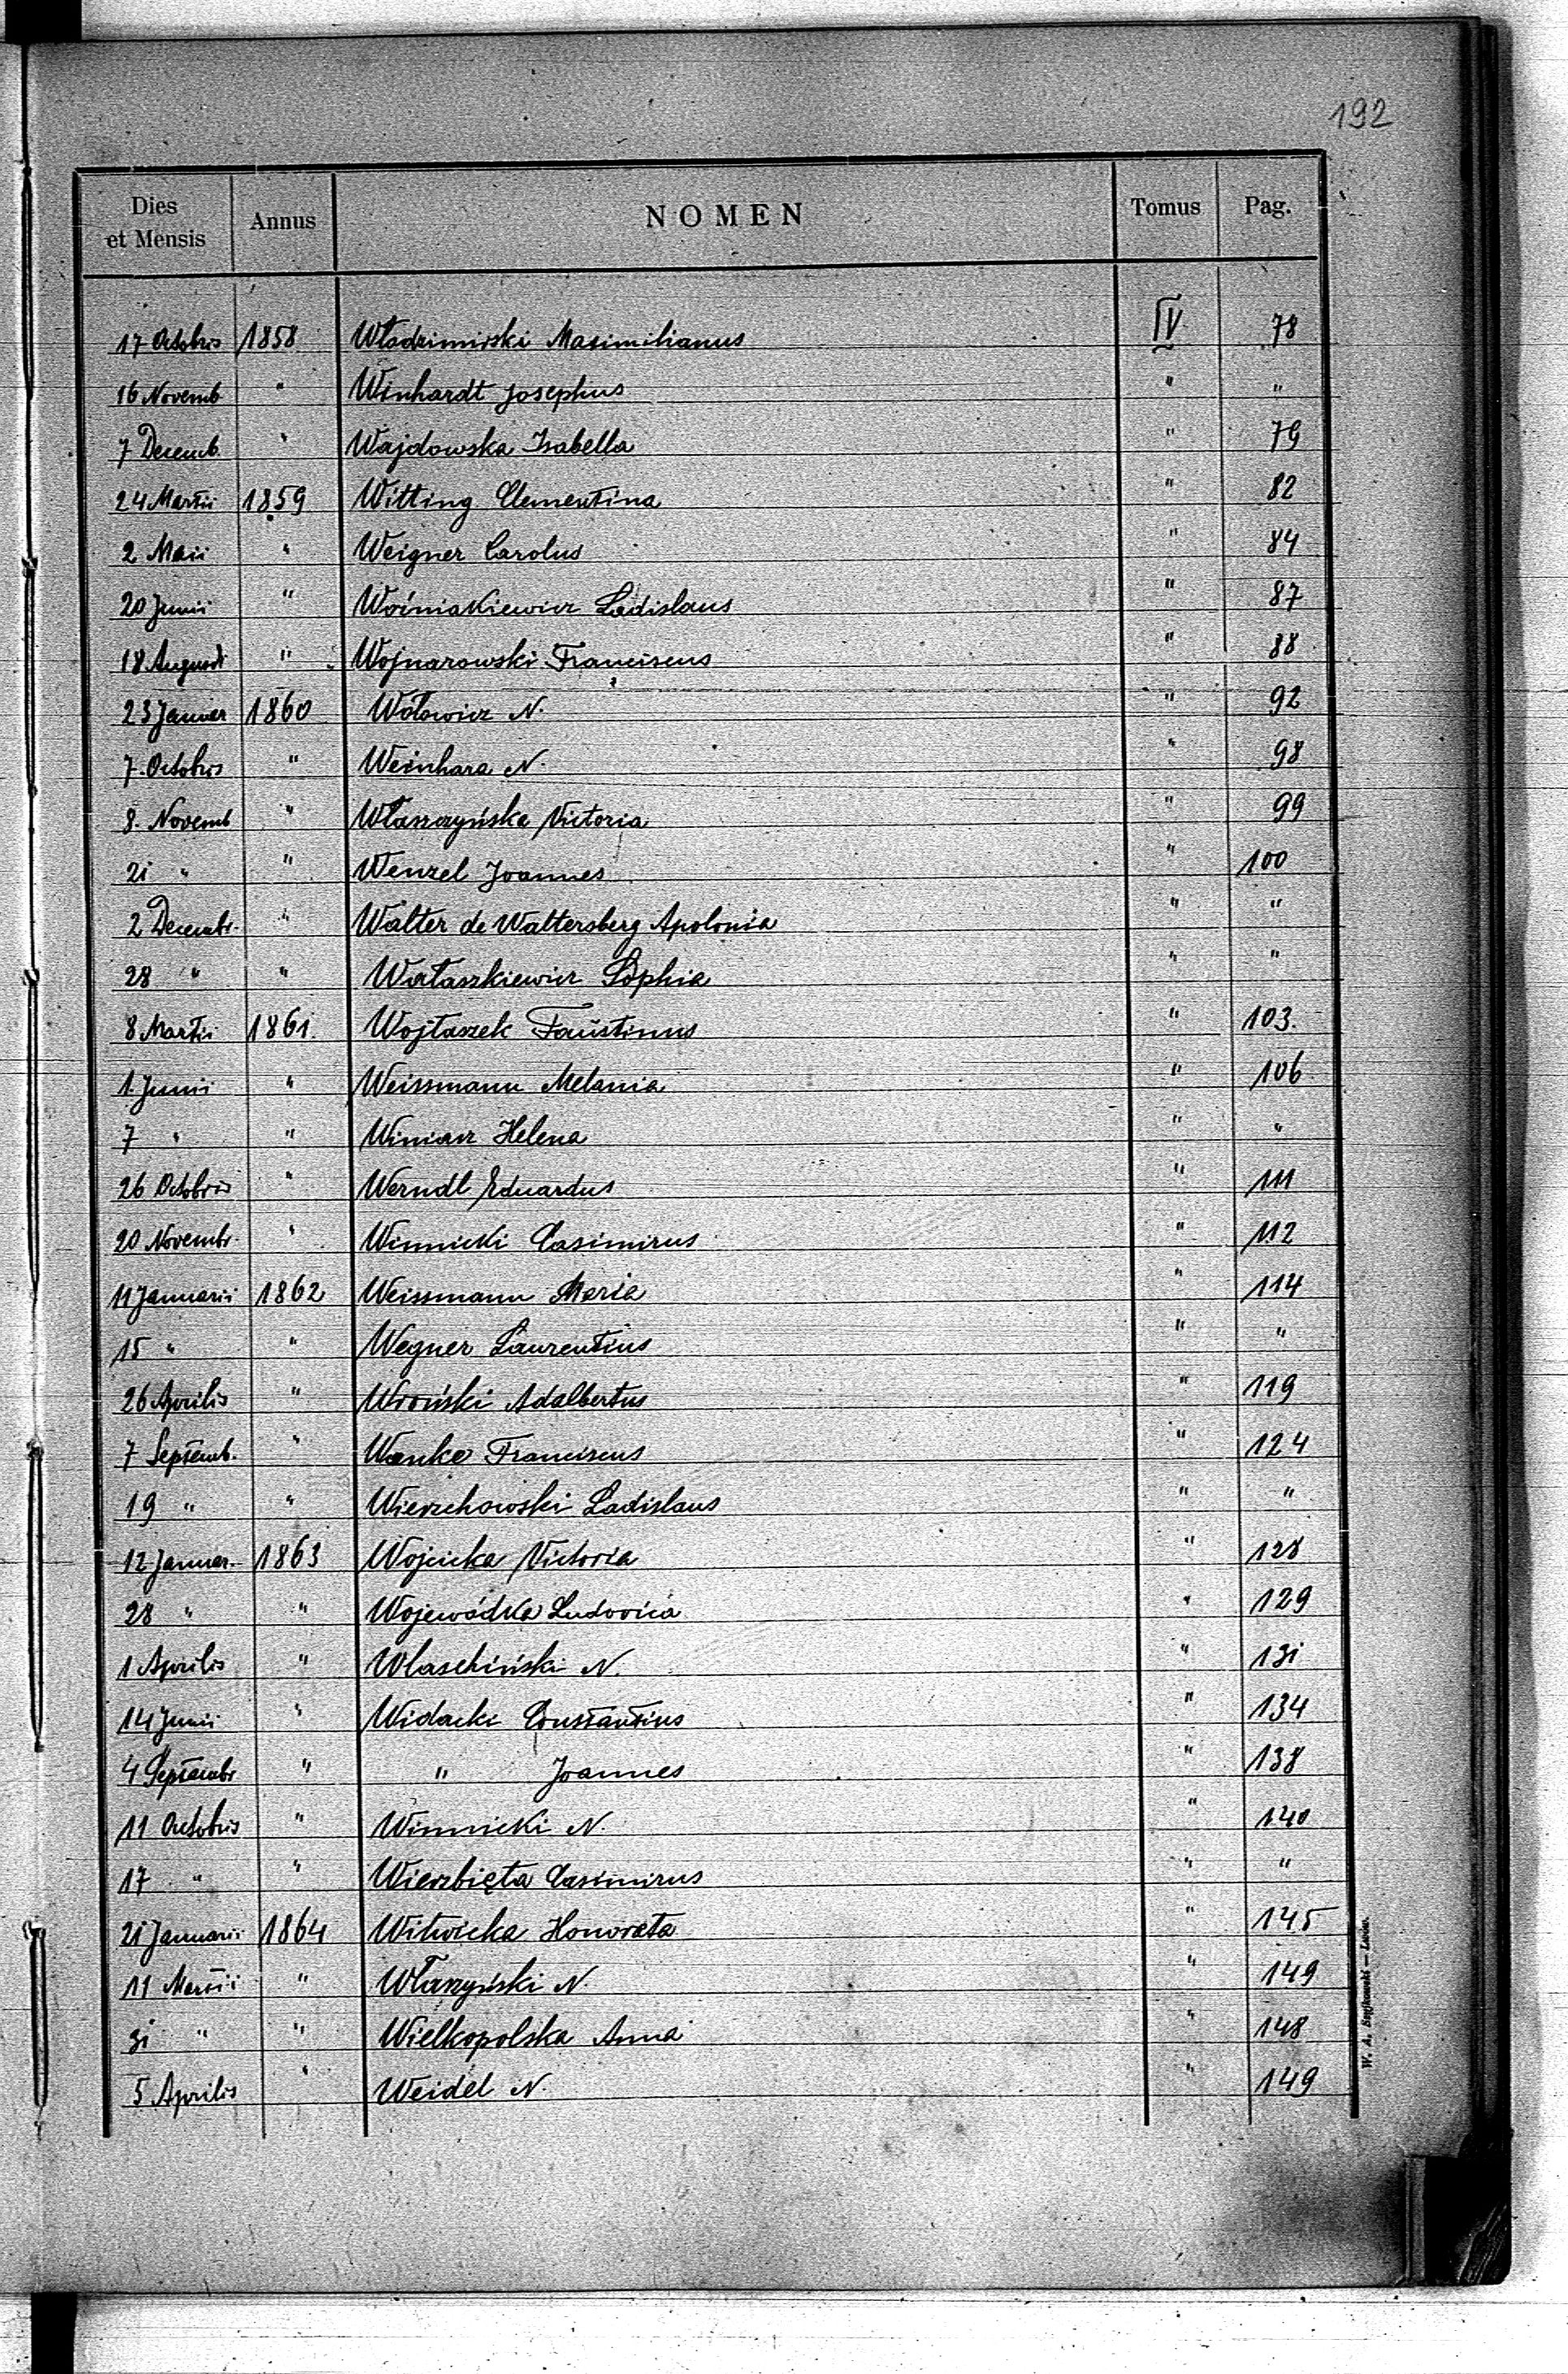 192
Dies et Mensis Annus NOMEN Tomus Pag.
17 Octobris 1858 Włodzimirski Maximilianus IV 78
16 Novemb " Winhardt Josephus " "
7 Decemb. " Wajdowska Isabella " 79
24 Martii 1859 Witting Clementina " 82
2 Maii " Weigner Carolus " 84
20 Junii " Woźniakiewicz Ladislaus " 87
18 Augusti " Wojnarowski Franciscus " 88
23 Januar 1860 Wołowicz N. " 92
7. Octobris " Weinhara N. " 98
8. Novemb " Właszczyńska Victoria " 99
21 " " Wenzel Joannes " 100
2 Decembr. " Walter de Waltersberg Apolonia " "
28 " " Wataszkiewicz Sophia " "
8 Martii 1861. Wojtaszek Faustinus " 103.
1. Junii " Weissmann Melania " 106
7 " " Winiarz Helena " "
26 Octobris " Werndl Eduardus " 111
20 Novembr. " Winnicki Casimirus " 112
11 Januarii 1862 Weissmann Maria " 114
15 " " Wegner Laurentius " "
26 Aprilis " Wroński Adalbertus " 119
7 Septemb. " Wanke Franciscus " 124
19 " " Wierzchowski Ladislaus " "
12 Januar. 1863 Wojcicka Victoria " 128
28 " " Wojewódka Ludovica " 129
1 Aprilis " Wlaschiński N. " 131
14 Junii " Widacki Constantius " 134
4 Septembr " " Joannes " 138
11 Octobris " Winnicki N. " 140
17 " " Wierzbięta Casimirus " "
21 Januarii 1864 Witwicka Honorata " 145
11 Martii " Właszyński N. " 149
31 " " Wielkopolska Anna " 148
5 Aprilis " Weidel N. " 149